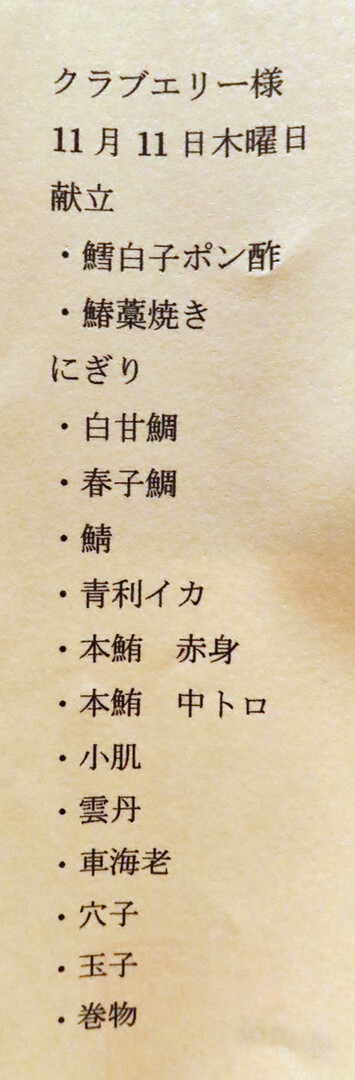 クラブエリー様
11月11日木曜日
献立
・鱈白子ポン酢
・鰆藁焼き
にぎり
・白甘鯛
・春子鯛
・鯖
・青利イカ
・本鮪　赤身
・本鮪　中トロ
・小肌
・雲丹
・車海老
・穴子
・玉子
・巻物